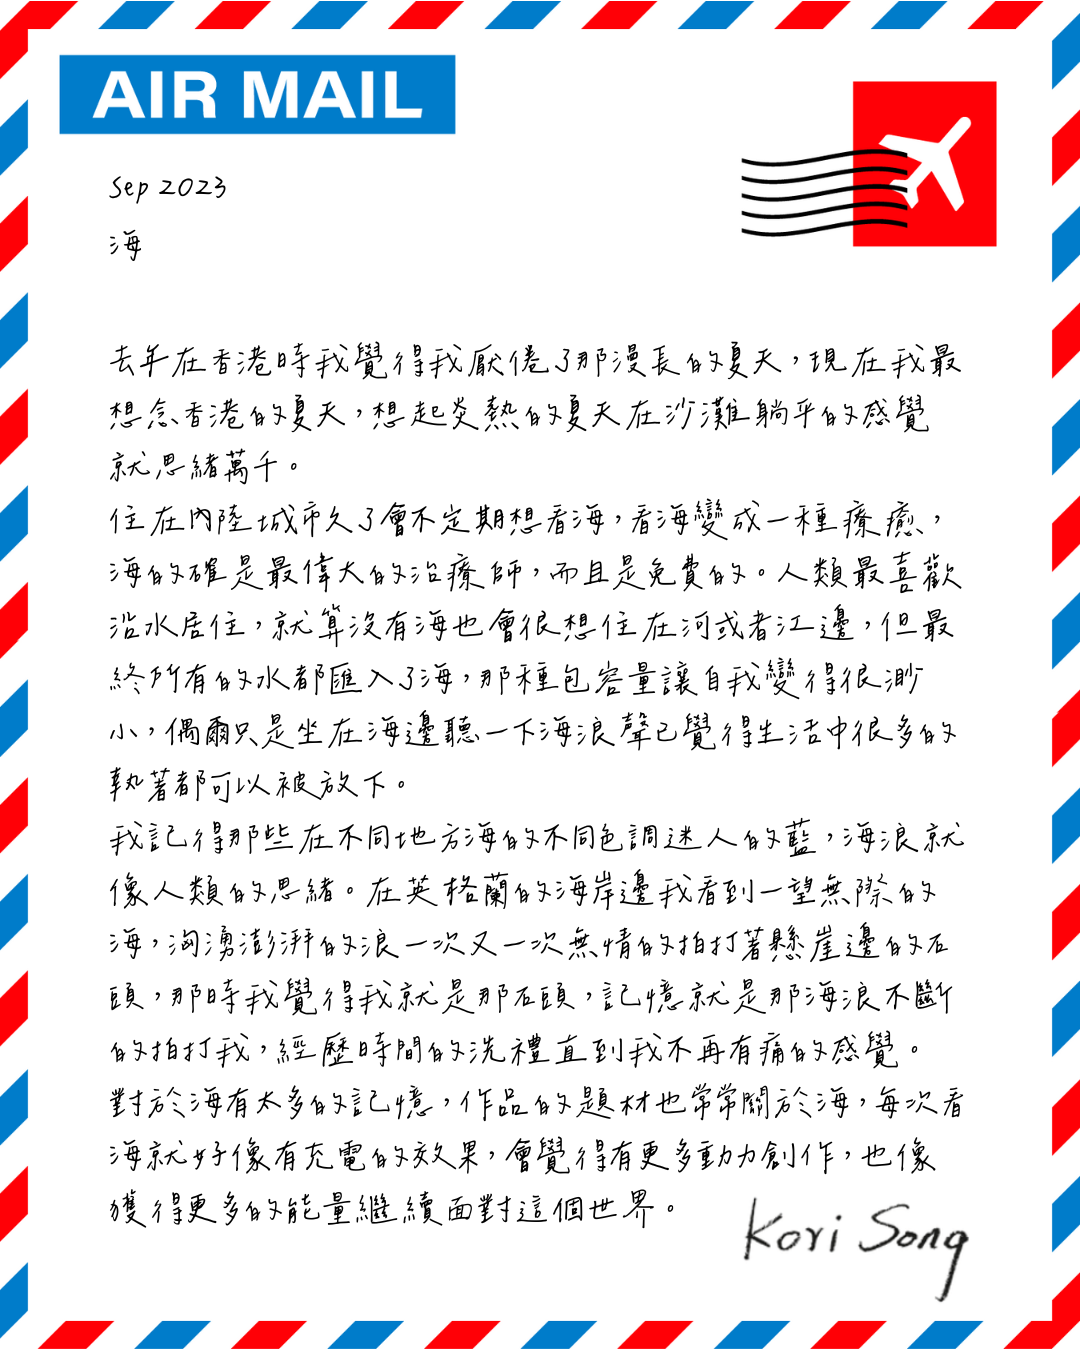 AIR MAIL
Sep 2023
海
去年在香港時我覺得我厭倦了那漫長的夏天，現在我最
想念香港的夏天，想起炎熱的夏天在沙灘躺平的感覺
就思緒萬千。
住在內陸城市久了會不定期想看海，看海變成一種療癒，
海的確是最偉大的治療師，而且是免費的。人類最喜歡
沿水居住，就算沒有海也會很想住在河或者江邊，但最
終所有的水都匯入了海，那種包容量讓自我變得很渺
小，偶爾只是坐在海邊聽一下海浪聲已覺得生活中很多的
執著都可以被放下。
我記得那些在不同地方海的不同色調迷人的藍，海浪就
像人類的思緒。在英格蘭的海岸邊我看到一望無際的
海，洶湧澎湃的浪一次又一次無情的拍打著懸崖邊的石
頭，那時我覺得我就是那石頭，記憶就是那海浪不斷
的拍打我，經歷時間的洗禮直到我不再有痛的感覺。
對於海有太多的記憶，作品的題材也常常關於海，每次看
海就好像有充電的效果，會覺得有更多動力創作，也像
獲得更多的能量繼續面對這個世界。
Kori Song